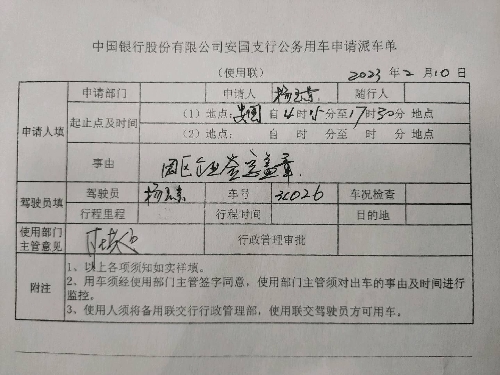 中国银行股份有限公司安国支行公务用车申请派车单
（使用联） 2023年2月10日
申请部门 申请人 随行人
申请人填 起止点及时间 （1）地点：安国 自 时 分至17时30分 地点
（2）地点： 自 时 分至 时 分 地点
事由 园区企业 盖章
驾驶员填 驾驶员 车号 3C026 车况检查
行程里程 行程时间 目的地
使用部门主管意见 行政管理审批
附注
1、以上各项须知如实样填。
2、用车须经使用部门主管签字同意，使用部门主管须对出车的事由及时间进行
监控。
3、使用人须将备用联交行行政管理部，使用联交驾驶员方可用车。